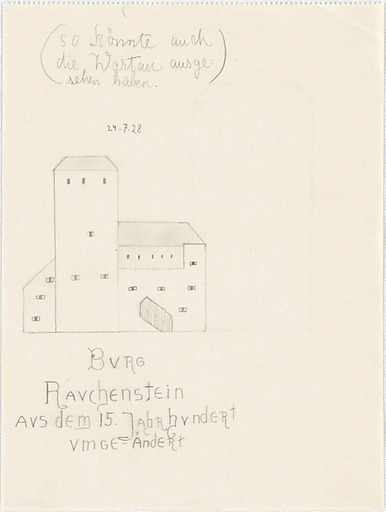 (so könnte auch
die Wartau ausge=
sehen haben.)
24.7.28
BVRG
RAVCHENSTEIN
AVS dEM 15. JAHRHVNDERt
VMGE=ÄNDERt